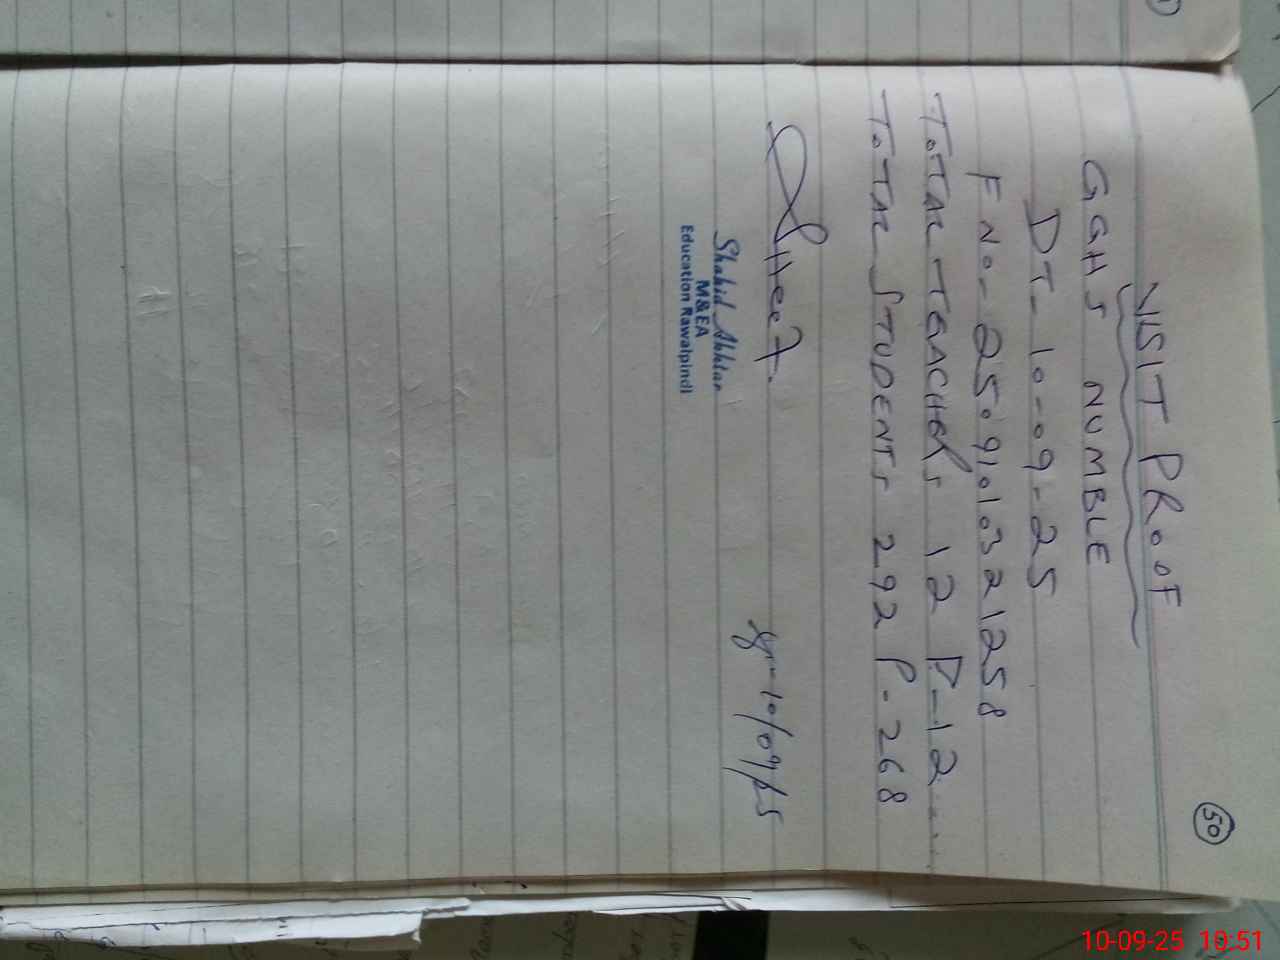 50
VISIT PROOF
GGHS NUMBLE
DT- 10-09-25
F No- 2509101032 1258
TOTAL TEACHERS 12 P-12
TOTAL STUDENTS 292 P-268
10/09/25
Shahid Akhtar
M&EA
Education Rawalpindi
10-09-25 10:51